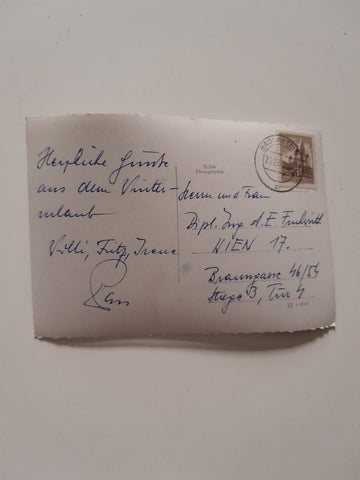 Herzliche Grüsse
aus dem Winter-
urlaub
Willi, Fritz, Irene
Echte
Photographie
Herrn und Frau
Dipl. Ing. d. E.
WIEN 17.
Braungasse 46/54
Stiege 3, Tür 4